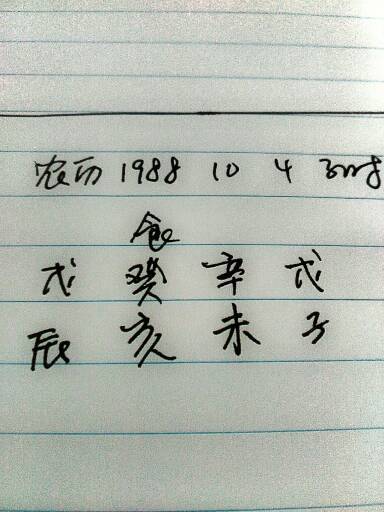 农历 1988 10 4
食
戊 癸 辛 戊
辰 亥 未 子